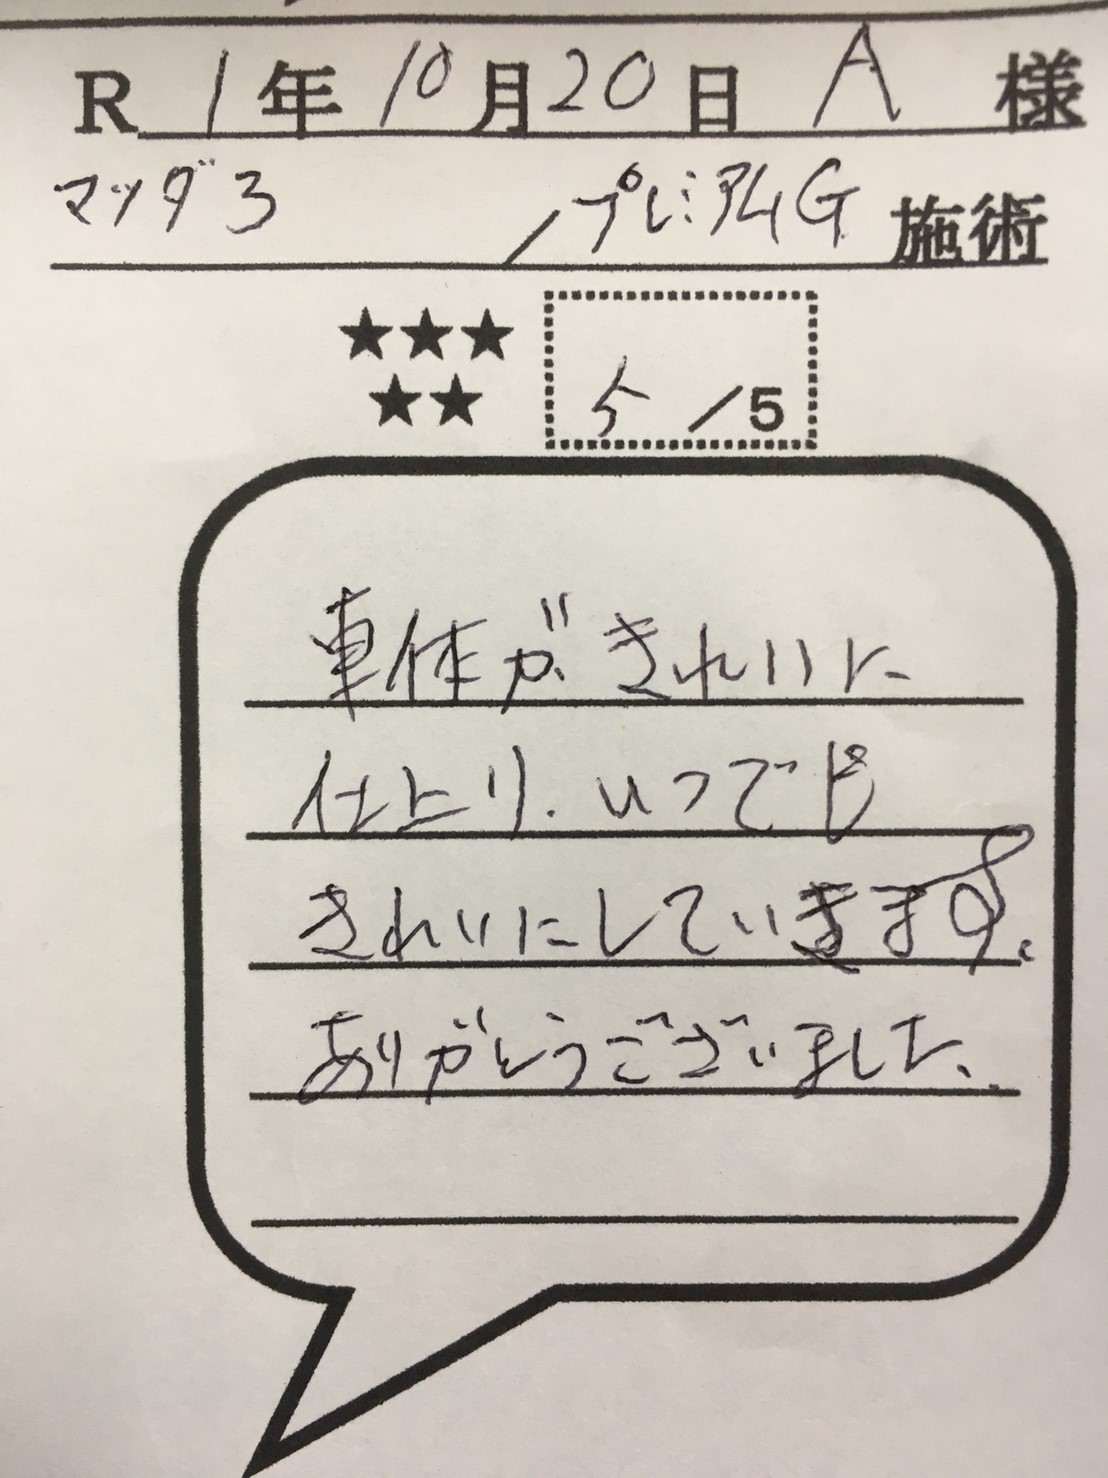 R 1年 10月20日 A 様
マツダ3 /プレミアムG 施術
★★★
★★ 5 /5
車体がきれいに
仕上り、いつでも
きれいにしていきます。
ありがとうございました。